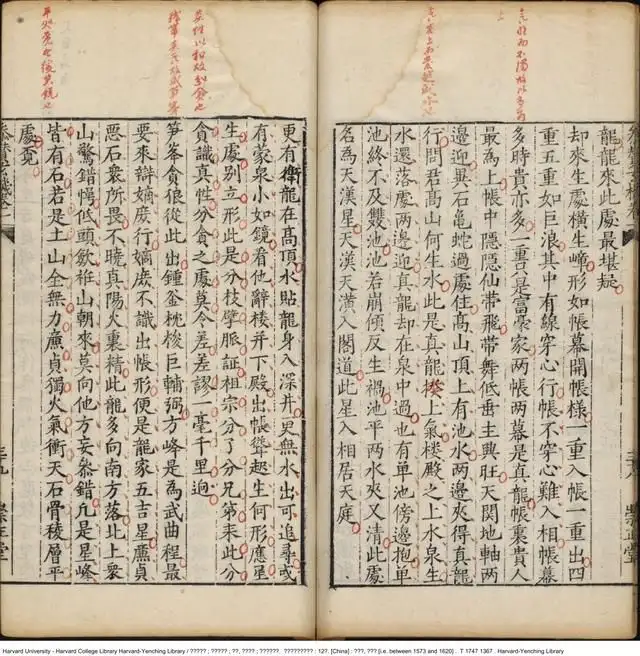 龍龍來此處最堪疑
却來生處橫生嶂形如帳幕開帳樣一重入帳一重出四
重五重如巨浪其中有線穿心行帳不穿心難入相帳幕
多時貴亦多一重只是富豪家兩帳兩幕是真龍帳裏貴人
最為上帳中隱隱仙帶飛帶舞低垂主興旺天関地軸兩
邊迎異石龜蛇過處住髙山頂上有池水兩邊夾得真龍
行問君髙山何生水此是真龍樓上氣樓殿之上水泉生
水還落處兩邊迎真龍却在泉中過也有单池傍邊抱单
池終不及雙池池若崩傾反生禍池平兩水夾又清此處
名為天漢星天漢天潢入閣道此星入相居天庭
更有衛龍在髙頂水貼龍身入深井更無水出可追尋或
有蒙泉小如鏡看他辭樓并下殿出帳聳起生何形應星
生處别立形此是分枝擘脈証祖宗分了分兄弟来此分
貪識真性分貪之處莫令差差謬一毫千里迥
笋峯貪狼從此出鍾釜枕梭巨輔弼方峰是為武曲程最
要來辯嫡庶行嫡庶不識出帳形便是龍家五吉星廉貞
惡石衆所畏不曉真陽火裏精此龍多向南方落北上衆
山驚錯愕低頭歛袵山朝來莫向他方妄參錯凡是星峰
皆有石若是土山全無力廉貞獨火氣衝天石骨稜層平
處覓
Harvard University - Harvard College Library Harvard-Yenching Library / ????? ; ????? ; ??, ???? ; ??????. ????????? : 12?. [China] : ???, ??? [i.e. between 1573 and 1620] . T 1747 1367 . Harvard-Yenching Library